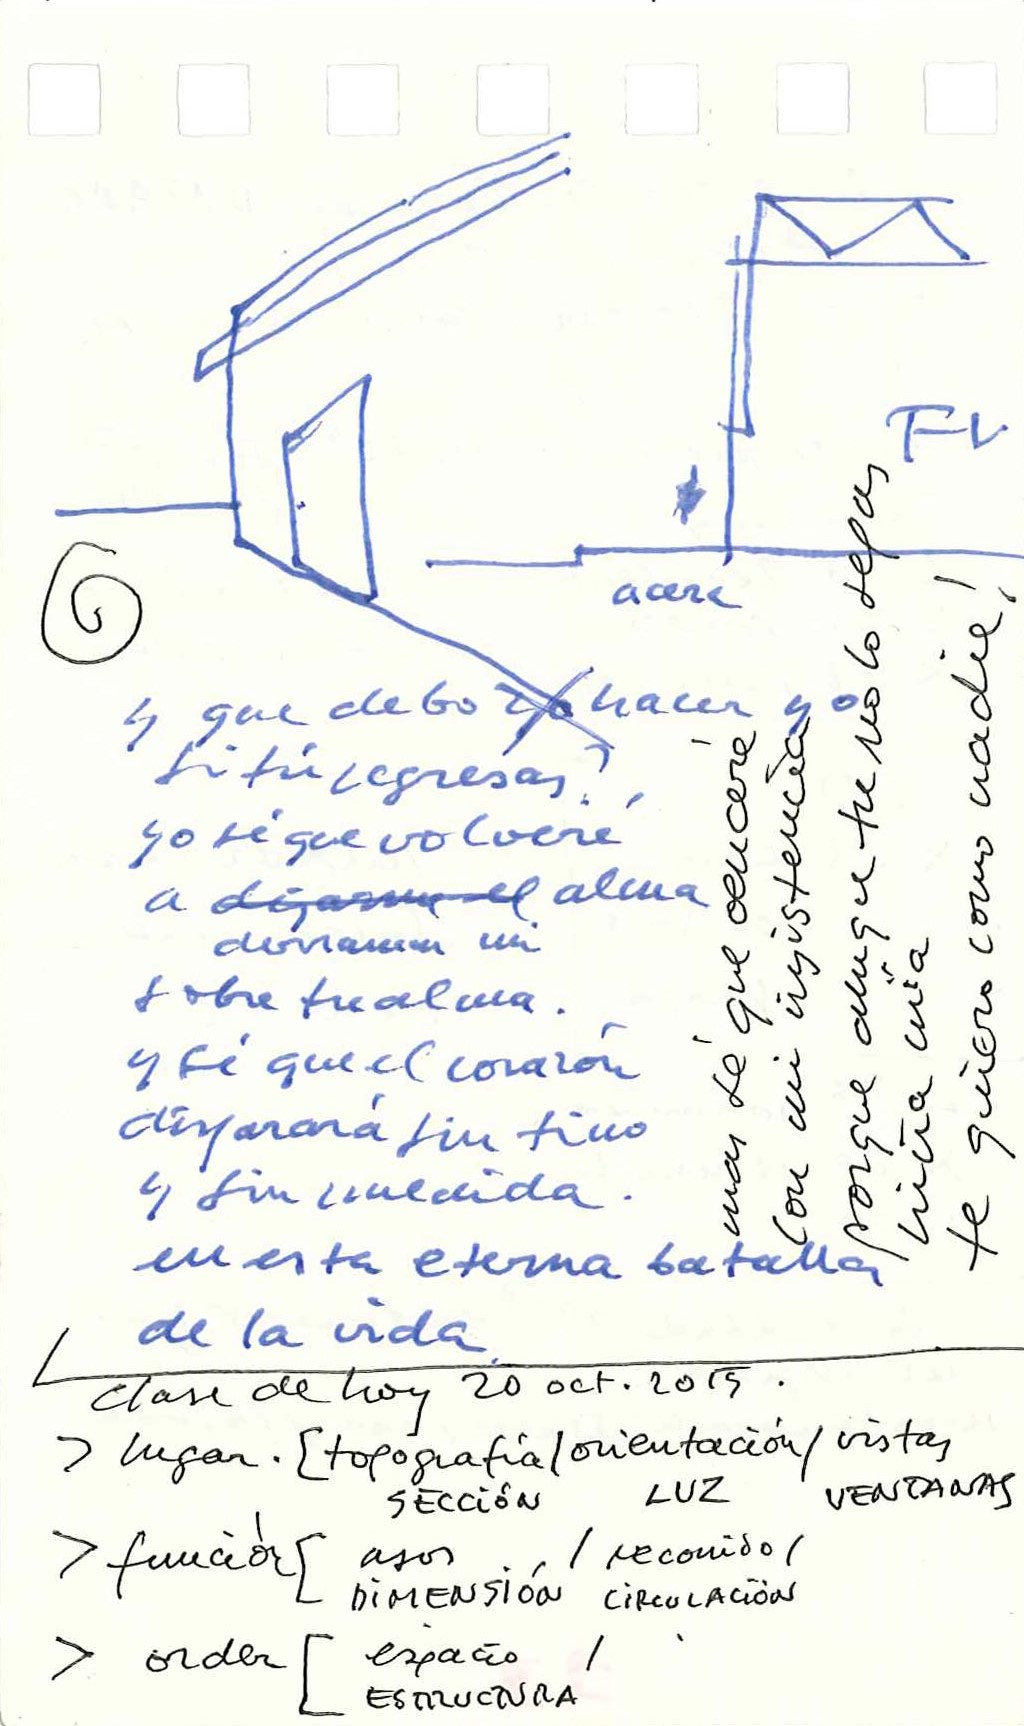 FV
acera
y que debo yo hacer yo
si tú regresas?
yo sé que volveré
a alma
derramar mi
sobre tu alma.
y sé que el corazón
disparará sin tino
y sin medida.
en esta eterna batalla
de la vida
mas sé que venceré
con mi insistencia
porque aunque tu no lo sepas
niña mía
te quiero como nadie!
clase de hoy 20 oct. 2015.
> lugar. [topografía/orientación/vistas
SECCIÓN LUZ VENTANAS
> función [ usos / recorrido/
DIMENSIÓN CIRCULACIÓN
> orden [ espacio /
ESTRUCTURA